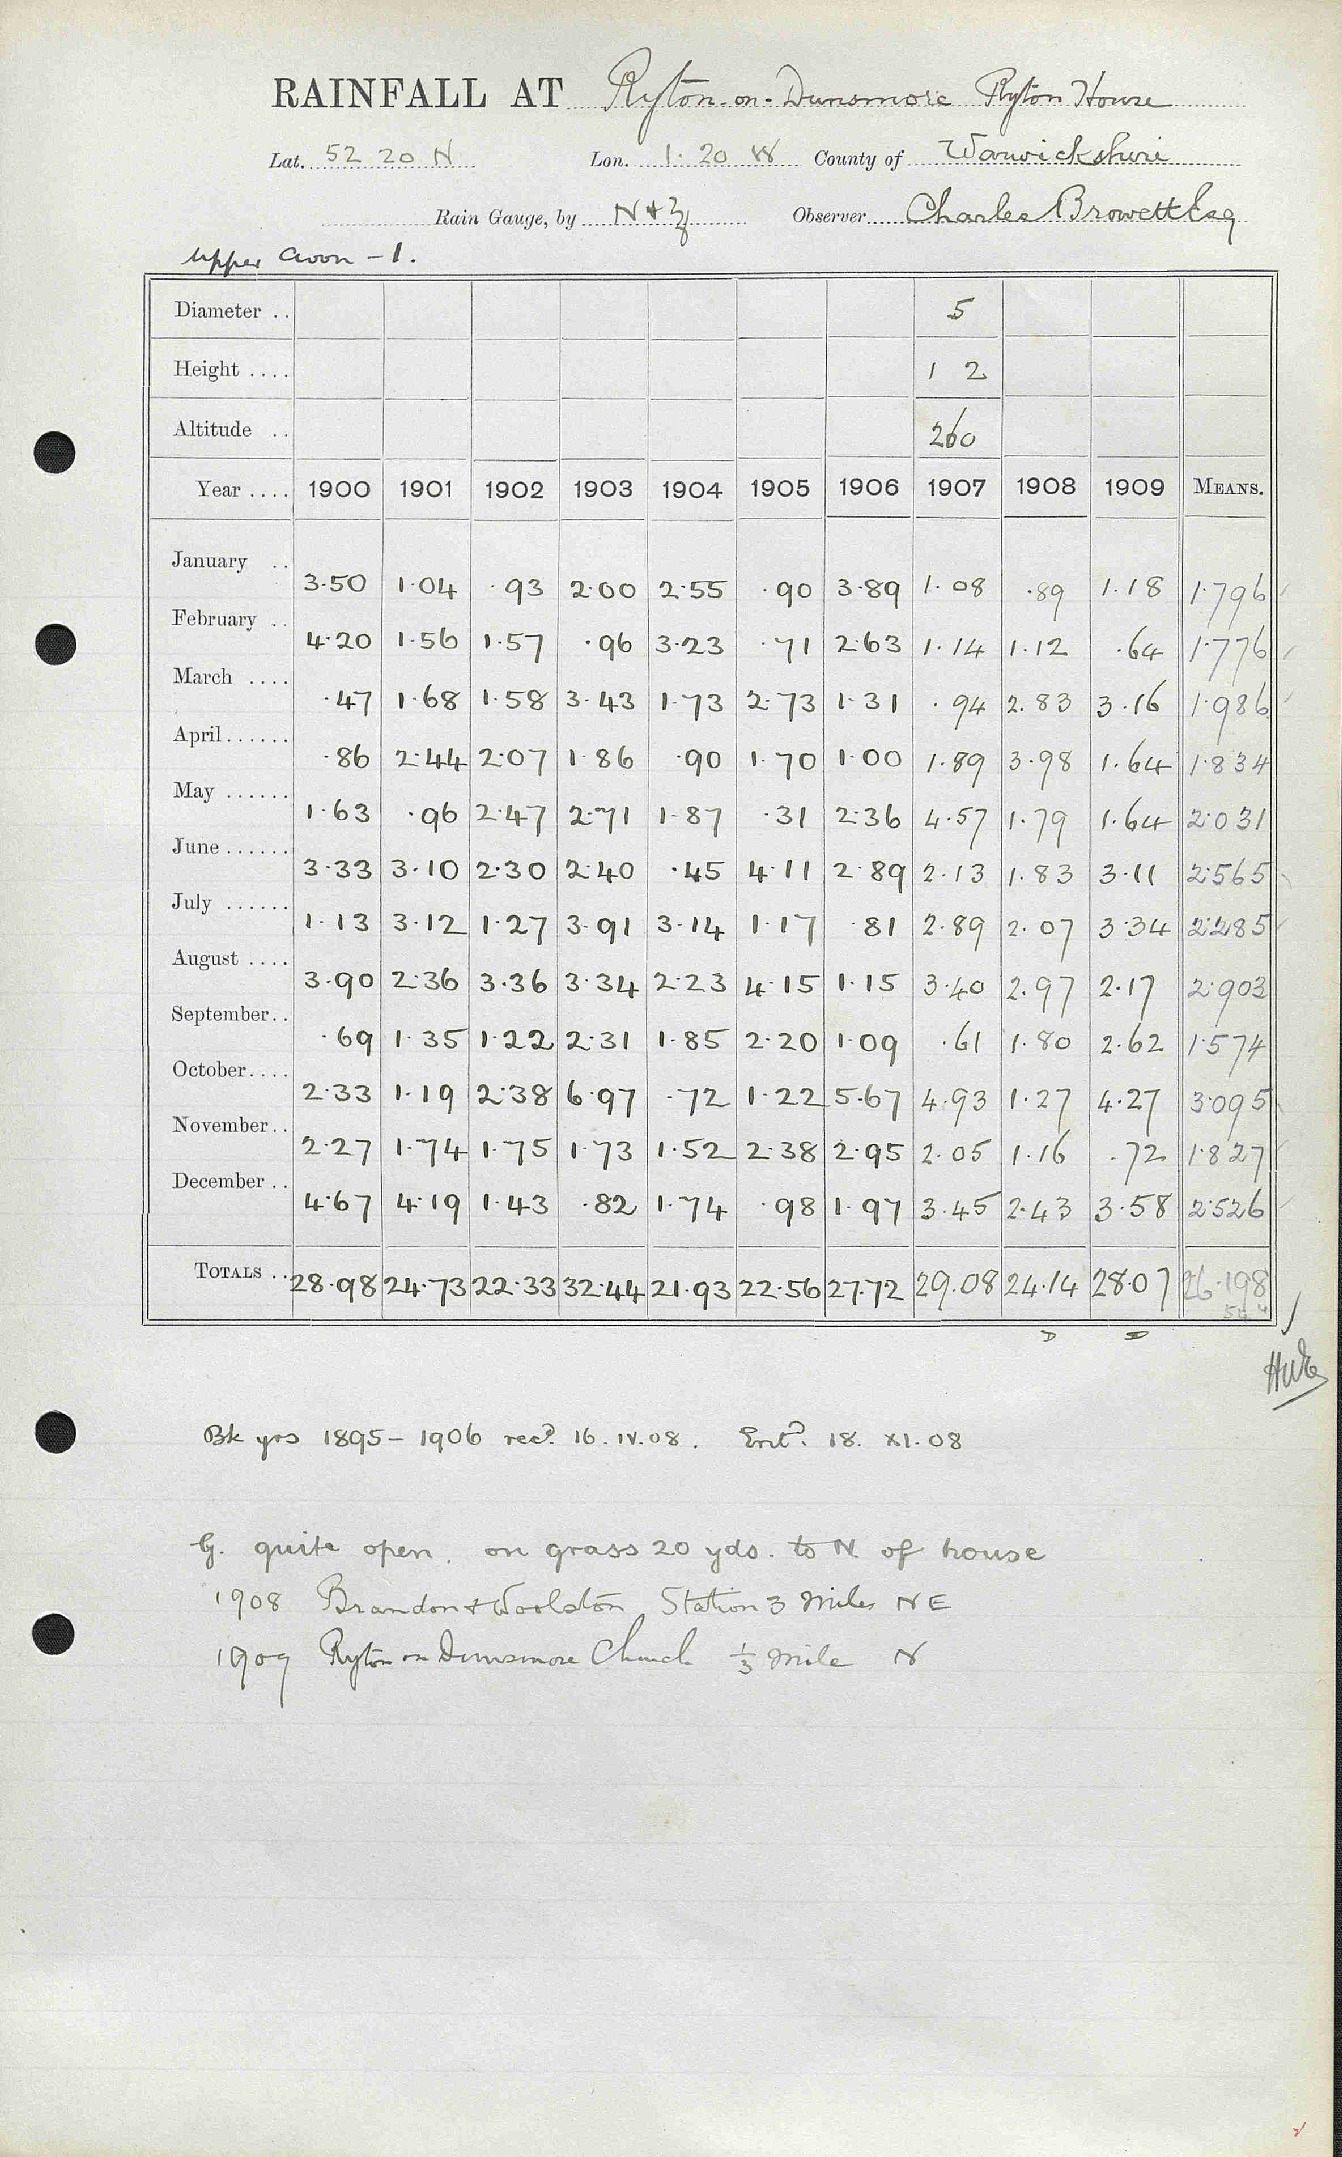 RAINFALL AT Ryton-on-Dunsmore Ryton House
Lat. 52 20 N Lon. 1·20 W County of Warwickshire
Rain Gauge, by N & Z Observer Charles Browett Esq
Upper Avon – 1.
Diameter .. 5
Height .... 1 2
Altitude .. 260
Year .... 1900 1901 1902 1903 1904 1905 1906 1907 1908 1909 MEANS.
January .. 3·50 1·04 ·93 2·00 2·55 ·90 3·89 1·08 ·89 1·18 1·796
February .. 4·20 1·56 1·57 ·96 3·23 ·71 2·63 1·14 1·12 ·64 1·776
March .... ·47 1·68 1·58 3·43 1·73 2·73 1·31 ·94 2·83 3·16 1·986
April...... ·86 2·44 2·07 1·86 ·90 1·70 1·00 1·89 3·98 1·64 1·834
May ...... 1·63 ·96 2·47 2·71 1·87 ·31 2·36 4·57 1·79 1·64 2·031
June ...... 3·33 3·10 2·30 2·40 ·45 4·11 2·89 2·13 1·83 3·11 2·565
July ...... 1·13 3·12 1·27 3·91 3·14 1·17 ·81 2·89 2·07 3·34 2·285
August .... 3·90 2·36 3·36 3·34 2·23 4·15 1·15 3·40 2·97 2·17 2·903
September.. ·69 1·35 1·22 2·31 1·85 2·20 1·09 ·61 1·80 2·62 1·574
October.... 2·33 1·19 2·38 6·97 ·72 1·22 5·67 4·93 1·27 4·27 3·095
November.. 2·27 1·74 1·75 1·73 1·52 2·38 2·95 2·05 1·16 ·72 1·827
December .. 4·67 4·19 1·43 ·82 1·74 ·98 1·97 3·45 2·43 3·58 2·526
TOTALS .. 28·98 24·73 22·33 32·44 21·93 22·56 27·72 29·08 24·14 28·07 26·198
D D
Bk yrs 1895 – 1906 recd. 16.IV.08. Entd. 18.XI.08
G. quite open, on grass 20 yds. to N. of house
1908 Brandon & Woolston Station 3 Miles NE
1909 Ryton on Dunsmore Church 1/3 Mile N